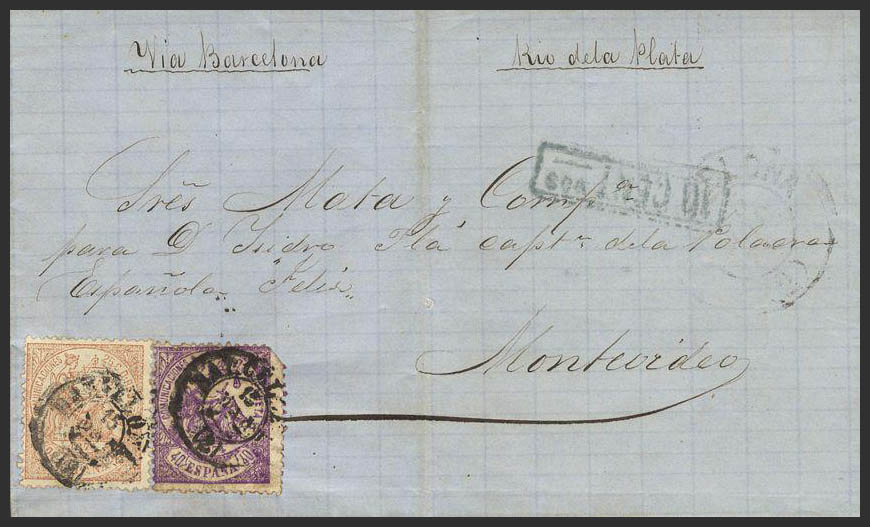 Via Barcelona
Rio dela Plata
Sres Mata y Compa
para D Isidro Plá captn de la Polacra
Española "Felix"
Montevideo
10 CENT
COMUNICACIONES
40 ESPAÑA 40
BARCELONA